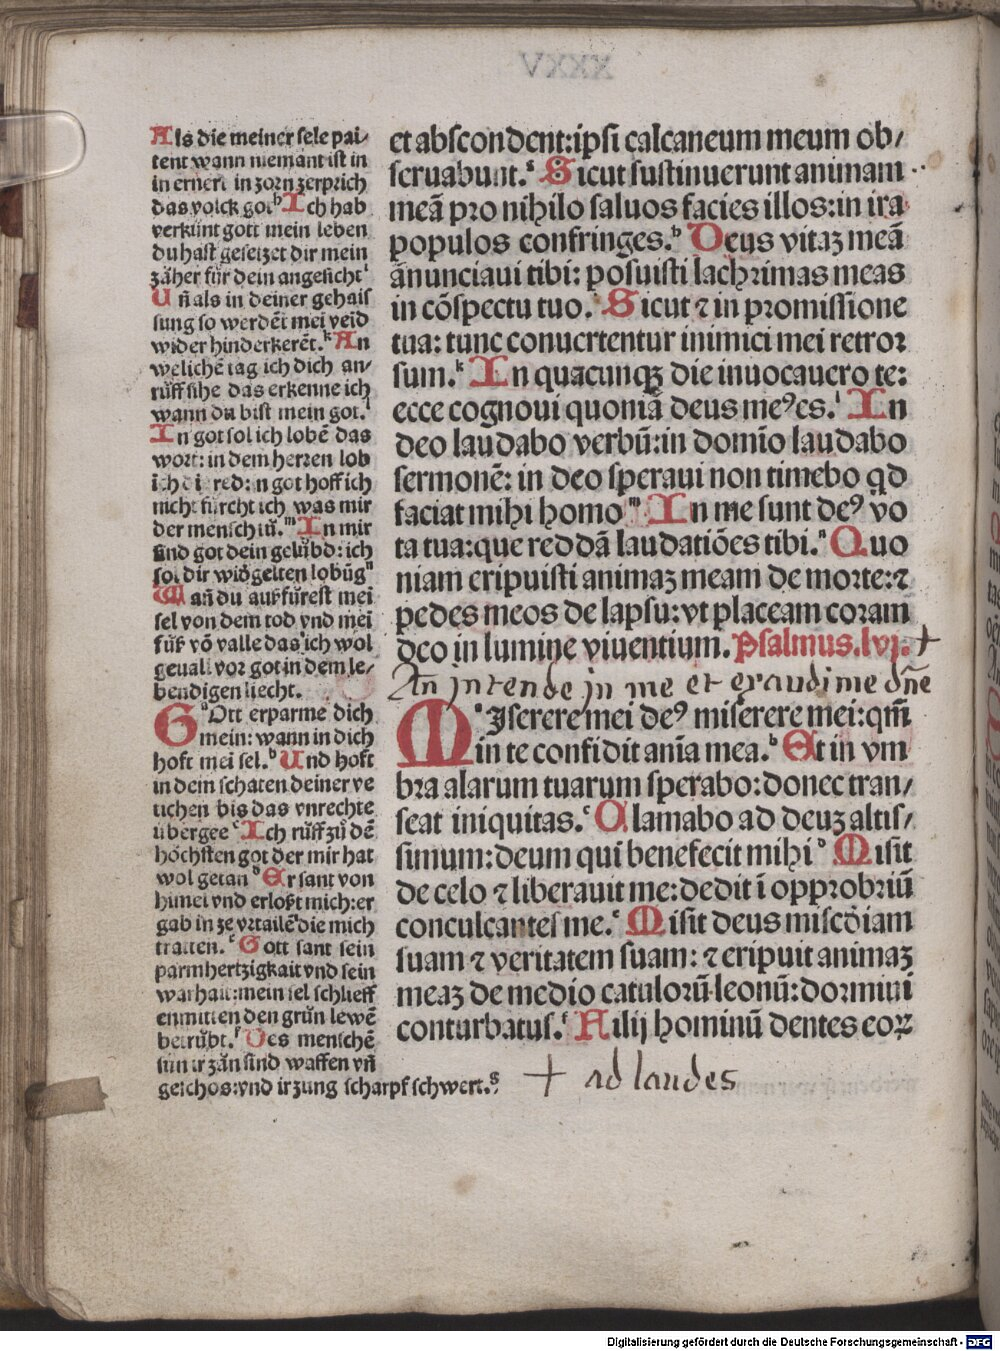 Als die meiner sele pai/
tent wann niemant ist in
in ernert in zorn zerprich
das volck got ᵇ Ich hab
verkünt gott mein leben
du hast gesetzet dir mein
zäher für dein angesicht ⁱ
Uñ als in deiner gehais
sung so werdēt mei veid
wider hinderkerēt.ᵏ An
welichē tag ich dich an/
rüff sihe das erkenne ich
wann du bist mein got.ˡ
In got sol ich lobē das
wort: in dem herren lob
ich di red: in got hoff ich
nicht fürcht ich was mir
der mensch tů.ᵐ In mir
sind got dein gelübd: ich
sol dir widgelten lobūgⁿ
Wañ du auszfürest mei
sel von dem tod vnd mei
füsz vō valle das ich wol
geuall vor got in dem le/
bendigen liecht.
Gᵃott erparme dich
mein: wann in dich
hoft mei sel.ᵇ Und hoft
in dem schaten deiner ve
tichen bis das vnrechte
übergee ᶜ Ich rüff zů dē
höchsten got der mir hat
wol getan ᵈ Er sant von
himel vnd erloszt mich: er
gab in ze vrtailē die mich
tratten.ᵉ Gott sant sein
parmhertzigkait vnd sein
warhait: mein sel schlieff
enmitten den grün lewē
betrübt.ᶠ Des menschē
sun ir zän sind waffen vñ
geschos: vnd ir zung scharpf schwert.ᵍ
et abscondent: ipsi calcaneum meum ob/
seruabunt.ᵍ Sicut sustinuerunt animam
meā pro nihilo saluos facies illos: in ira
populos confringes.ʰ Deus vitaz meā
ānunciaui tibi: posuisti lachrimas meas
in cōspectu tuo.ⁱ Sicut ⁊ in promissione
tua: tunc conuertentur inimici mei retror
sum.ᵏ In quacunqꝫ die inuocauero te:
ecce cognoui quoniā deus meꝰ es.ˡ In
deo laudabo verbū: in domīo laudabo
sermonē: in deo speraui non timebo qd
faciat mihi homo ᵐ In me sunt deꝰ vo
ta tua: que reddā laudatiōes tibi.ⁿ Quo
niam eripuisti animaz meam de morte: ⁊
pedes meos de lapsu: vt placeam coram
deo in lumine viuentium. Psalmus.lvj. +
An intende in me et exaudi me dñe
Mᵃiserere mei deꝰ miserere mei: qm̄
in te confidit anīa mea.ᵇ Et in vm
bra alarum tuarum sperabo: donec tran/
seat iniquitas.ᶜ Clamabo ad deuz altis/
simum: deum qui benefecit mihi ᵈ Misit
de celo ⁊ liberauit me: dedit ī opprobriū
conculcantes me.ᵉ Misit deus miscd̄iam
suam ⁊ veritatem suam: ⁊ eripuit animaz
meaz de medio catulorū leonū: dormiui
conturbatus.ᶠ Filij hominū dentes eoꝝ
+ ad laudes
Digitalisierung gefördert durch die Deutsche Forschungsgemeinschaft - DFG